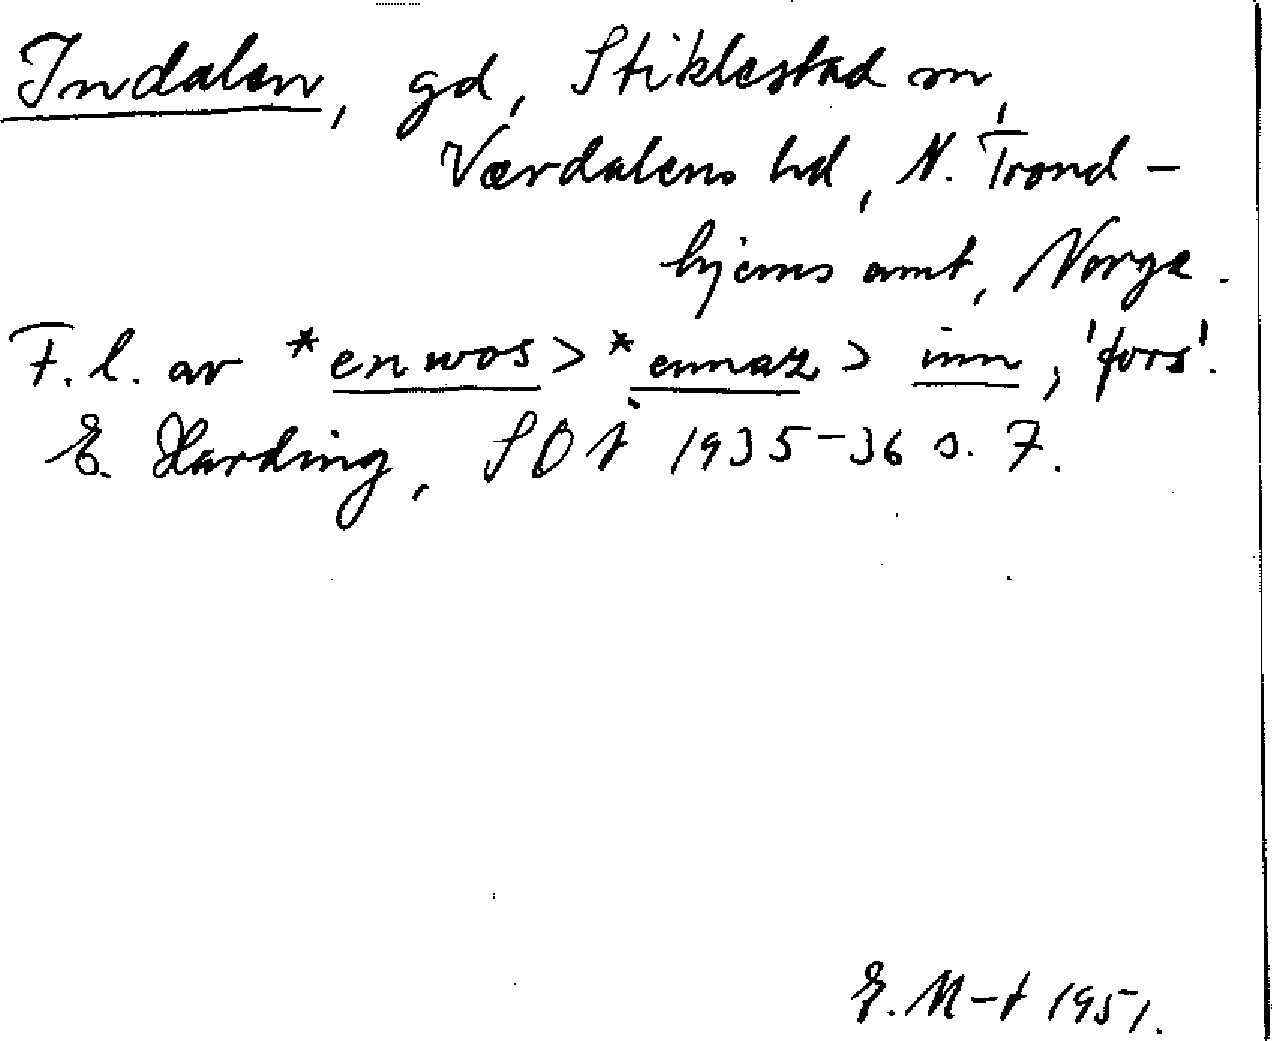 Indalen, gd, Stiklestad sn,
Værdalens hd, N. Trond-
hjems amt, Norge.
F.l. av *enwos > *ennaz > inn, 'fors'.
E. Harding, SOÅ 1935-36 s. 7.
E. M-t 1951.